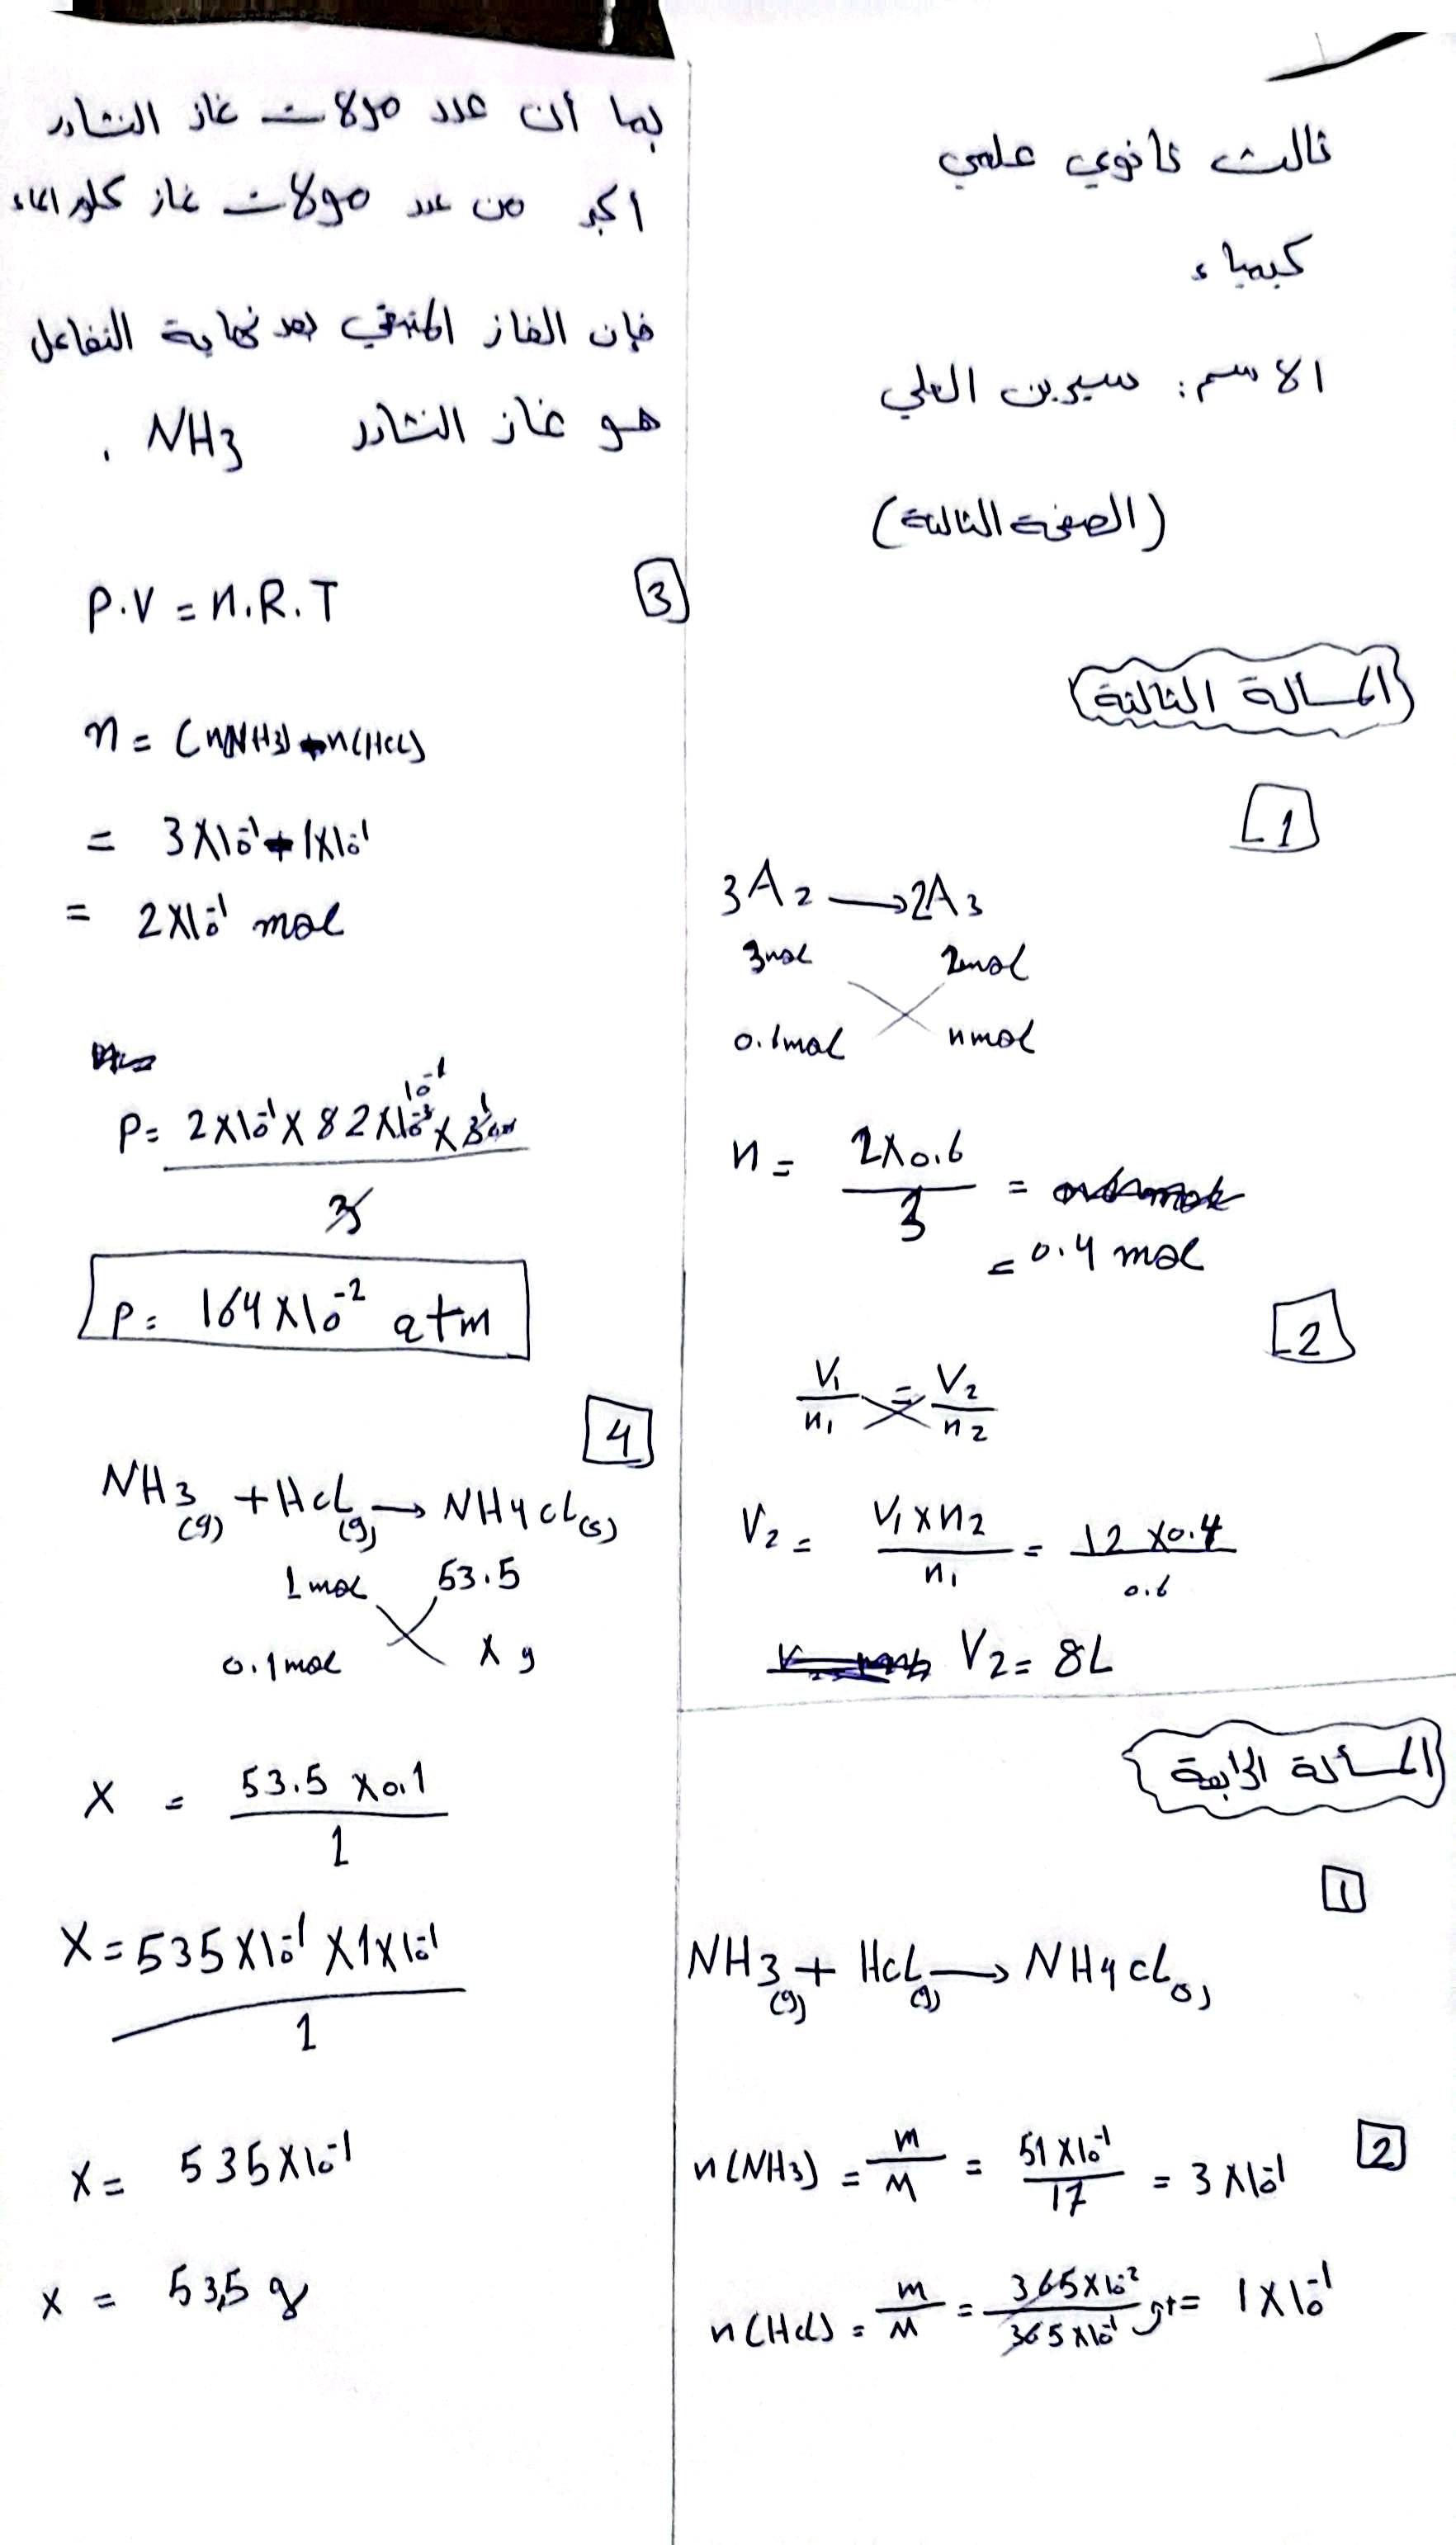 ثالث ثانوي علمي
كيمياء
الاسم: سيرين العلي
(الصفحة الثالثة)
المسألة الثالثة
1
3A2 → 2A3
3mol 2mol
0.1mol nmol
n = 2×0.6 / 3 =
= 0.4 mol
2
V1/n1 = V2/n2
V2 = V1×n2 / n1 = 12×0.4 / 0.6
V2 = 8L
المسألة الرابعة
1
NH3(g) + HCl(g) → NH4Cl(s)
2
n(NH3) = m/M = 51×10^-1 / 17 = 3×10^-1
n(HCl) = m/M = 365×10^-2 / 365×10^-1 = 1×10^-1
بما أن عدد مولات غاز النشادر
اكبر من عدد مولات غاز كلور الماء
فإن الغاز المتبقي بعد نهاية التفاعل
هو غاز النشادر NH3 .
3
P.V = n.R.T
n = (nNH3) - n(HCl)
= 3×10^-1 - 1×10^-1
= 2×10^-1 mol
10^-1
P = 2×10^-1 × 82×10^-3 × 300 / 3
P = 164×10^-2 atm
4
NH3(g) + HCl(g) → NH4Cl(s)
1mol 53.5
0.1mol x g
x = 53.5 × 0.1 / 1
x = 535×10^-1 × 1×10^-1 / 1
x = 535×10^-1
x = 53,5 g